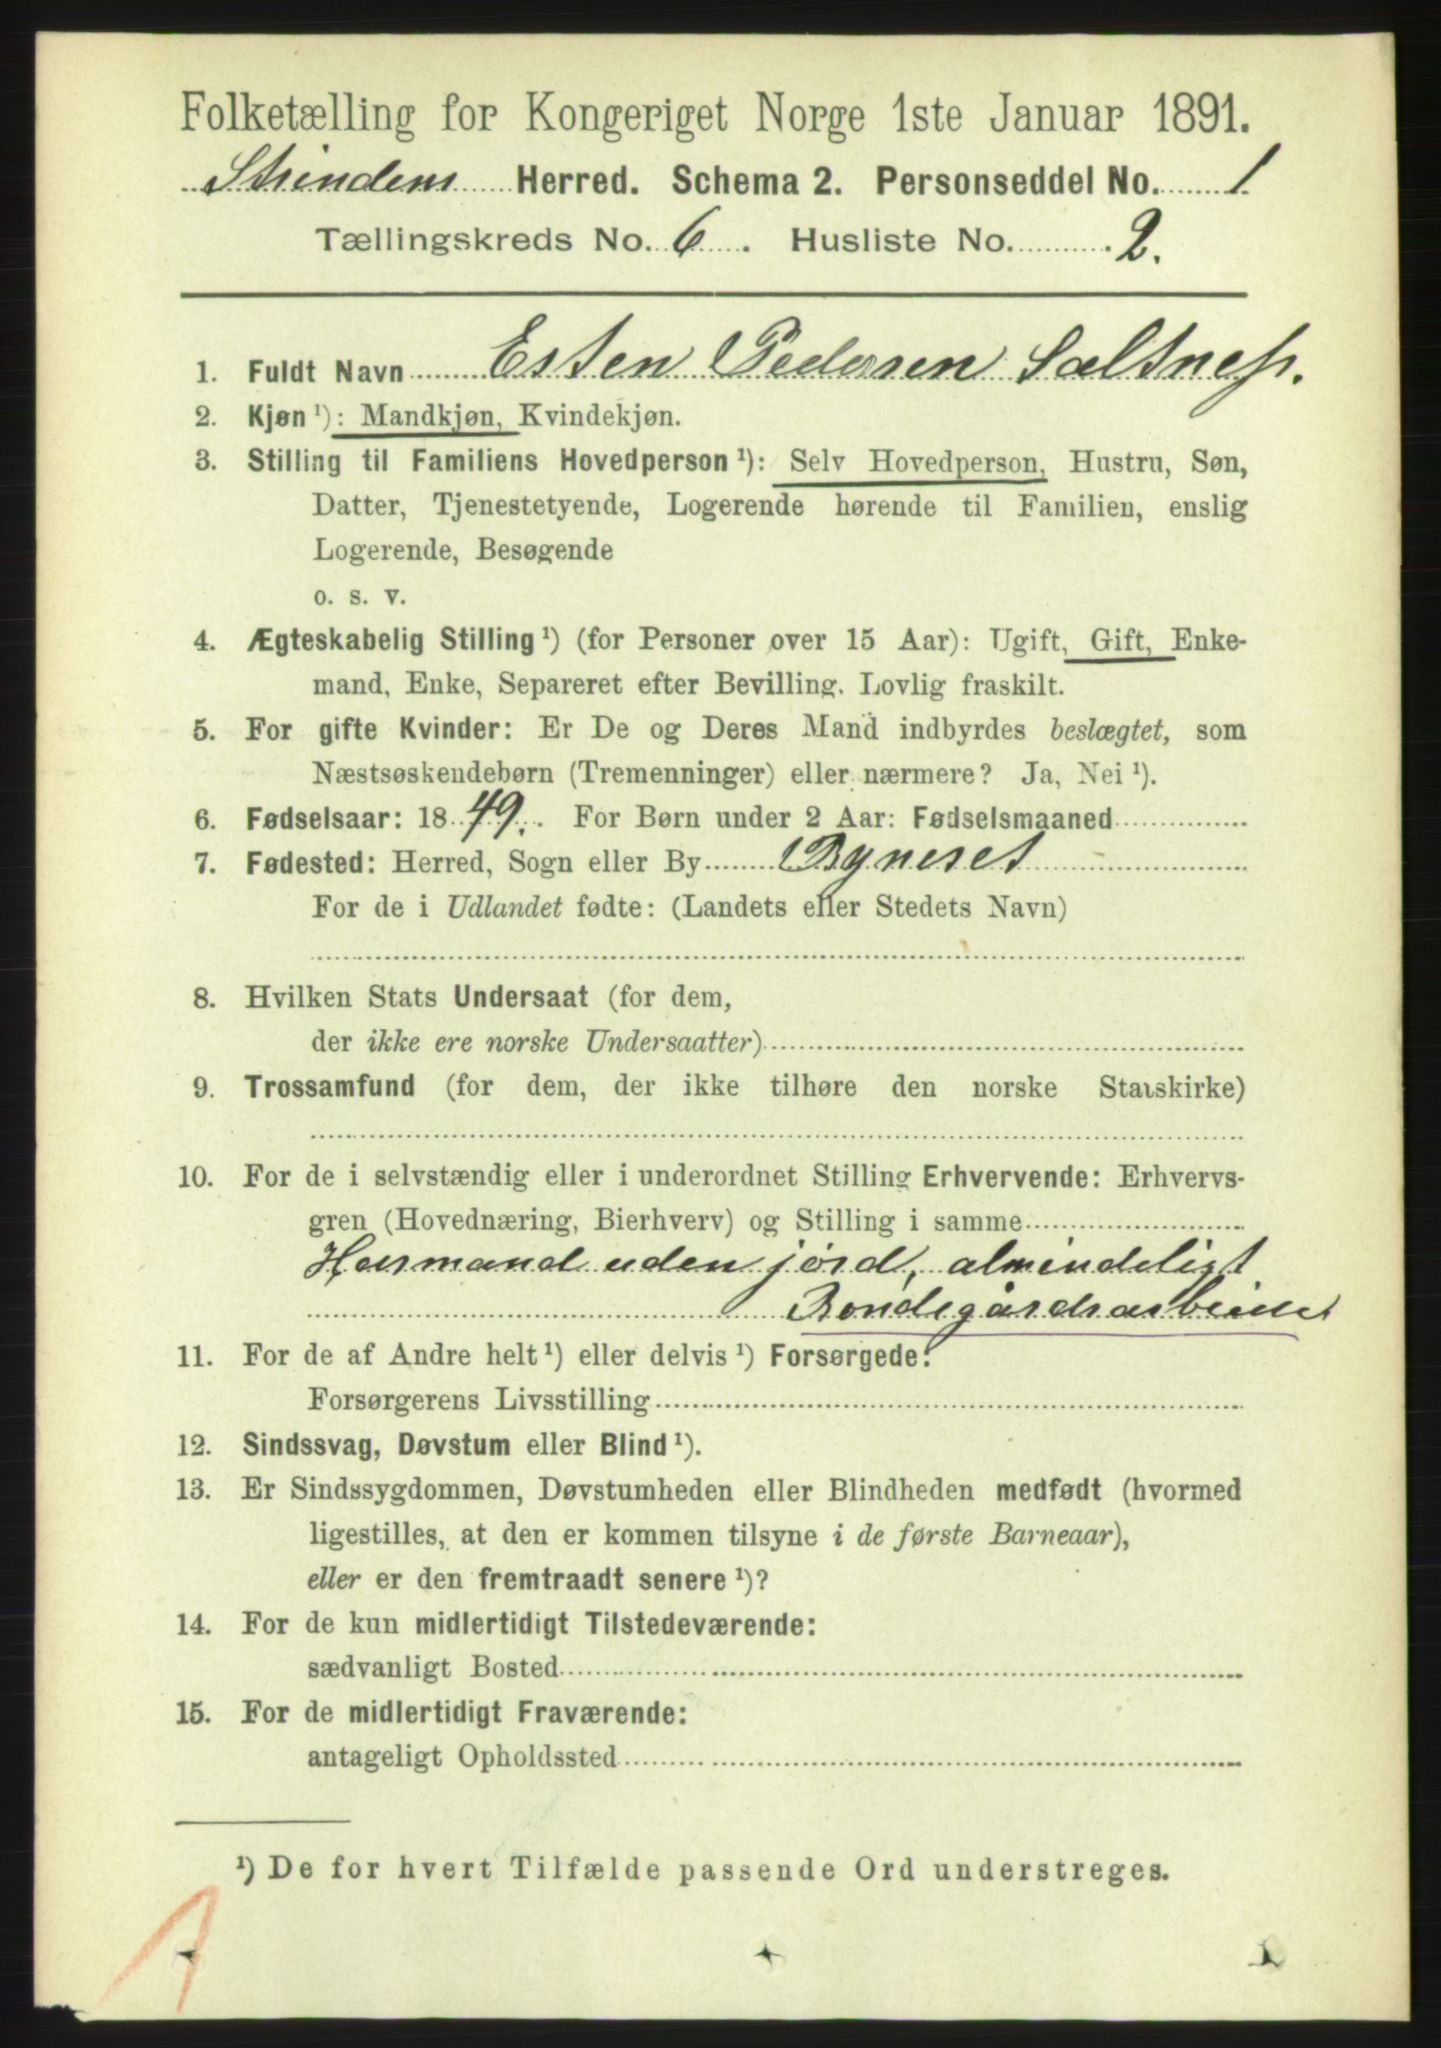 Folketælling for Kongeriget Norge 1ste Januar 1891.
Strindens Herred. Schema 2. Personseddel No. 1.
Tællingskreds No. 6. Husliste No. 2.
1. Fuldt Navn Esten Pedersen Saltnes.
2. Kjøn ¹): Mandkjøn, Kvindekjøn.
3. Stilling til Familiens Hovedperson ¹): Selv Hovedperson, Hustru, Søn,
Datter, Tjenestetyende, Logerende hørende til Familien, enslig
Logerende, Besøgende
o. s. v.
4. Ægteskabelig Stilling ¹) (for Personer over 15 Aar): Ugift, Gift, Enke-
mand, Enke, Separeret efter Bevilling. Lovlig fraskilt.
5. For gifte Kvinder: Er De og Deres Mand indbyrdes beslægtet, som
Næstsøskendebørn (Tremenninger) eller nærmere? Ja, Nei ¹).
6. Fødselsaar: 1849. For Børn under 2 Aar: Fødselsmaaned
7. Fødested: Herred, Sogn eller By Byneset
For de i Udlandet fødte: (Landets eller Stedets Navn)
8. Hvilken Stats Undersaat (for dem,
der ikke ere norske Undersaatter)
9. Trossamfund (for dem, der ikke tilhøre den norske Statskirke)
10. For de i selvstændig eller i underordnet Stilling Erhvervende: Erhvervs-
gren (Hovednæring, Bierhverv) og Stilling i samme
Husmand uden jord, almindeligt
Bondegårdsarbeide
11. For de af Andre helt ¹) eller delvis ¹) Forsørgede:
Forsørgerens Livsstilling
12. Sindssvag, Døvstum eller Blind ¹).
13. Er Sindssygdommen, Døvstumheden eller Blindheden medfødt (hvormed
ligestilles, at den er kommen tilsyne i de første Barneaar),
eller er den fremtraadt senere ¹)?
14. For de kun midlertidigt Tilstedeværende:
sædvanligt Bosted
15. For de midlertidigt Fraværende:
antageligt Opholdssted
¹) De for hvert Tilfælde passende Ord understreges.
1